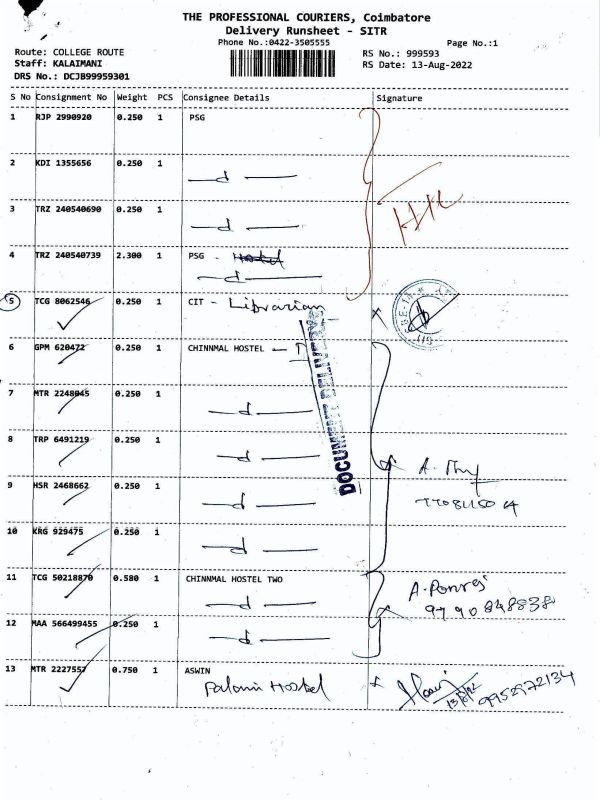 THE PROFESSIONAL COURIERS, Coimbatore
Delivery Runsheet - SITR
Phone No.:0422-3505555
Page No.:1
Route: COLLEGE ROUTE
RS No.: 999593
Staff: KALAIMANI
RS Date: 13-Aug-2022
DRS No.: DCJB99959301
S No Consignment No Weight PCS Consignee Details Signature
1 RJP 2990920 0.250 1 PSG
2 KDI 1355656 0.250 1 —d—
3 TRZ 240540690 0.250 1 —d—
4 TRZ 240540739 2.300 1 PSG - Hostel
—d—
5 TCG 8062546 0.250 1 CIT - Librarian
6 GPM 620472 0.250 1 CHINNMAL HOSTEL - I
DOCUMENT DELIVERY
7 MTR 2248045 0.250 1 —d—
8 TRP 6491219 0.250 1 —d—
9 HSR 2468662 0.250 1 —d—
10 KRG 929475 0.250 1 —d—
11 TCG 50218870 0.580 1 CHINNMAL HOSTEL TWO
—d—
A. Ponraj
9790848838
12 MAA 566499455 0.250 1 —d—
13 MTR 2227557 0.750 1 ASWIN
Palani Hostel
9952972134